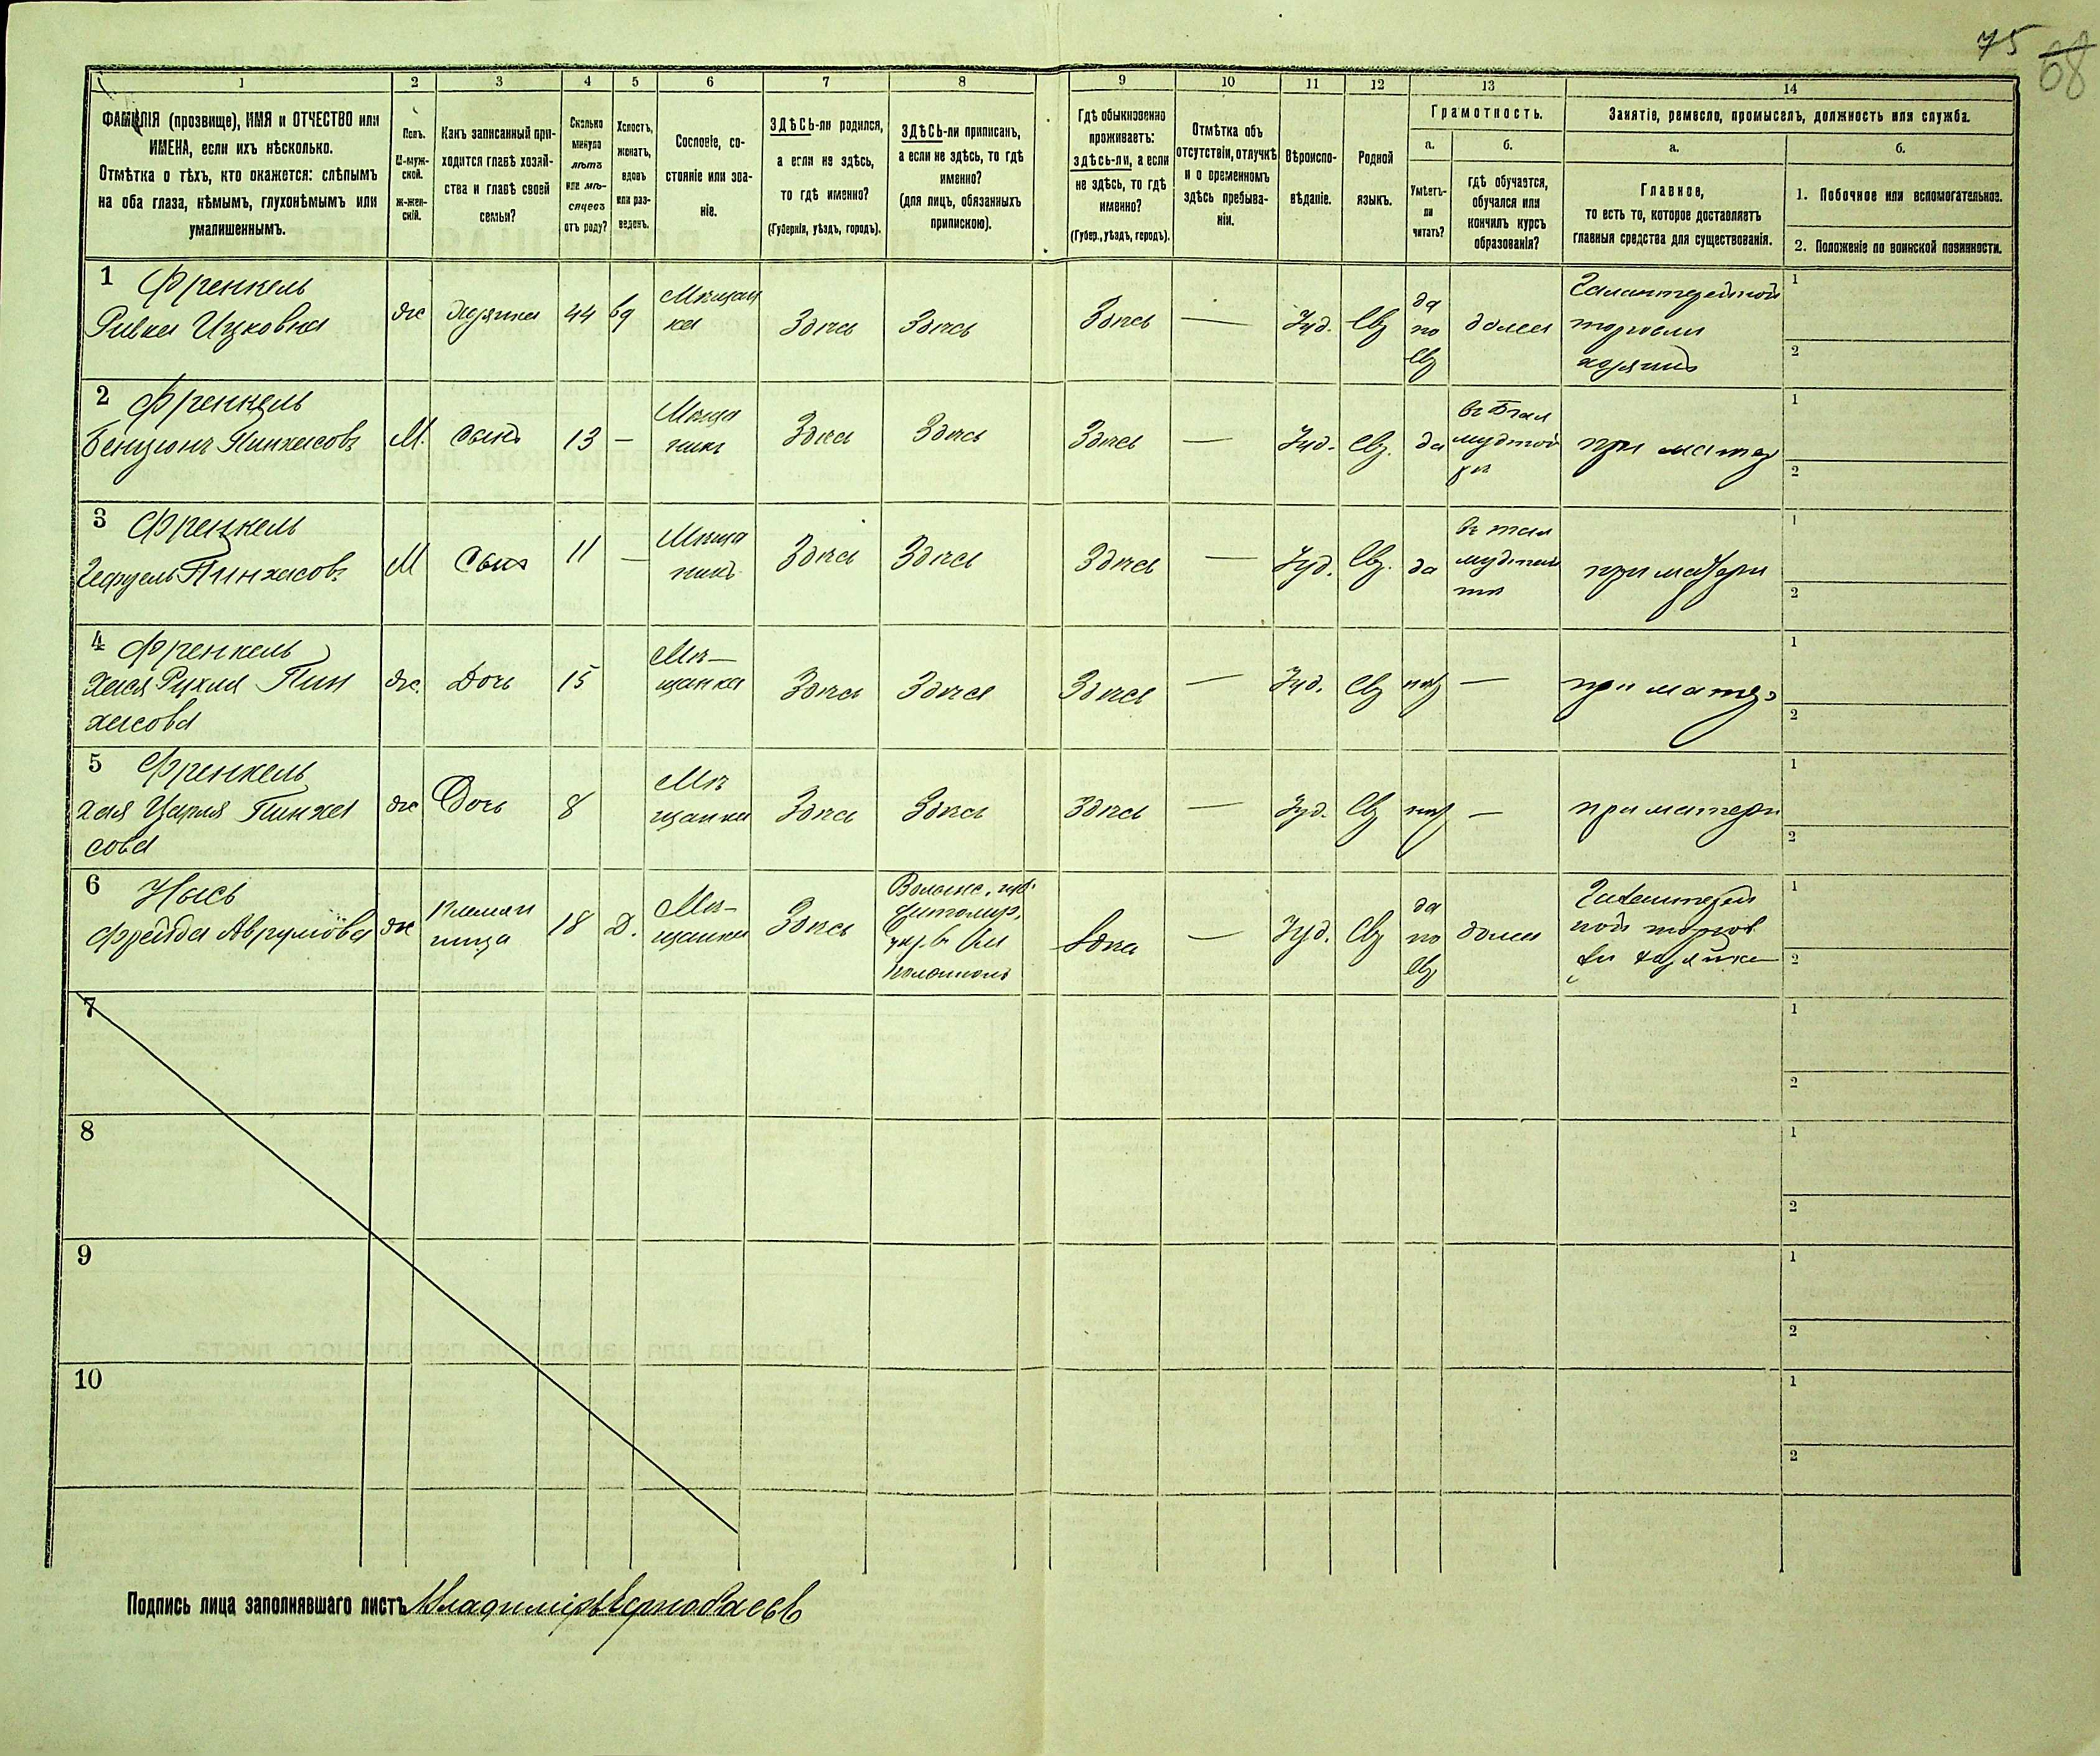 75
68
1 2 3 4 5 6 7 8 9 10 11 12 13 14
ФАМИЛІЯ (прозвище), ИМЯ и ОТЧЕСТВО или
ИМЕНА, если ихъ нѣсколько.
Отмѣтка о тѣхъ, кто окажется: слѣпымъ
на оба глаза, нѣмымъ, глухонѣмымъ или
умалишеннымъ.
Полъ.
М-муж-
ской.
Ж-жен-
скій.
Какъ записанный при-
ходится главѣ хозяй-
ства и главѣ своей
семьи?
Сколько
минуло
лѣтъ
или мѣ-
сяцевъ
отъ роду?
Холостъ,
женатъ,
вдовъ
или раз-
веденъ.
Сословіе, со-
стояніе или зва-
ніе.
ЗДѢСЬ-ли родился,
а если не здѣсь,
то гдѣ именно?
(Губернія, уѣздъ, городъ).
ЗДѢСЬ-ли приписанъ,
а если не здѣсь, то гдѣ
именно?
(для лицъ, обязанныхъ
припискою).
Гдѣ обыкновенно
проживаетъ:
здѣсь-ли, а если
не здѣсь, то гдѣ
именно?
(Губер., уѣздъ, городъ).
Отмѣтка объ
отсутствіи, отлучкѣ
и о временномъ
здѣсь пребыва-
ніи.
Вѣроиспо-
вѣданіе.
Родной
языкъ.
Грамотность.
а.
Умѣетъ-
ли
читать?
б.
гдѣ обучается,
обучался или
кончилъ курсъ
образованія?
Занятіе, ремесло, промыселъ, должность или служба.
а.
Главное,
то есть то, которое доставляетъ
главныя средства для существованія.
б.
1. Побочное или вспомогательное.
2. Положеніе по воинской повинности.
1 Френкель
Ривка Ицковна
ж
хозяйка
44
вд
Мѣщан
ка
Здѣсь
Здѣсь
Здѣсь
—
Іуд.
Евр
да
по
евр
дома
Галантерейной
торговли
хозяинъ
1
2
2 Френкель
Бенционъ Пинхасовъ
М.
сынъ
13
—
Мѣща
нинъ
Здѣсь
Здѣсь
Здѣсь
—
Іуд.
Евр.
да
при матер
1
2
3 Френкель
Пинхасовъ
М
Сынъ
11
—
Мѣща
нинъ
Здѣсь
Здѣсь
Здѣсь
—
Іуд.
Евр.
да
при матери
1
2
4 Френкель
Хася Рухля Пин
хасова
ж.
Дочь
15
Мѣ—
щанка
Здѣсь
Здѣсь
Здѣсь
—
Іуд.
Евр
нѣт
—
при матер
1
2
5 Френкель
Хая Пинха
сова
ж
Дочь
8
Мѣ
щанка
Здѣсь
Здѣсь
Здѣсь
—
Іуд.
Евр
нѣт
—
при матери
1
2
6 Нысь
Фрейда Аврумова
ж
Племян
ница
18
Д.
Мѣ-
щанка
Здѣсь
Волынс. губ.
Житомир.
Здѣсь
—
Іуд.
Евр
да
по
евр
дома
Галантерей
ной торгов
ли хозяйка
1
2
7
1
2
8
1
2
9
1
2
10
1
2
Подпись лица заполнявшаго листъ Владиміръ